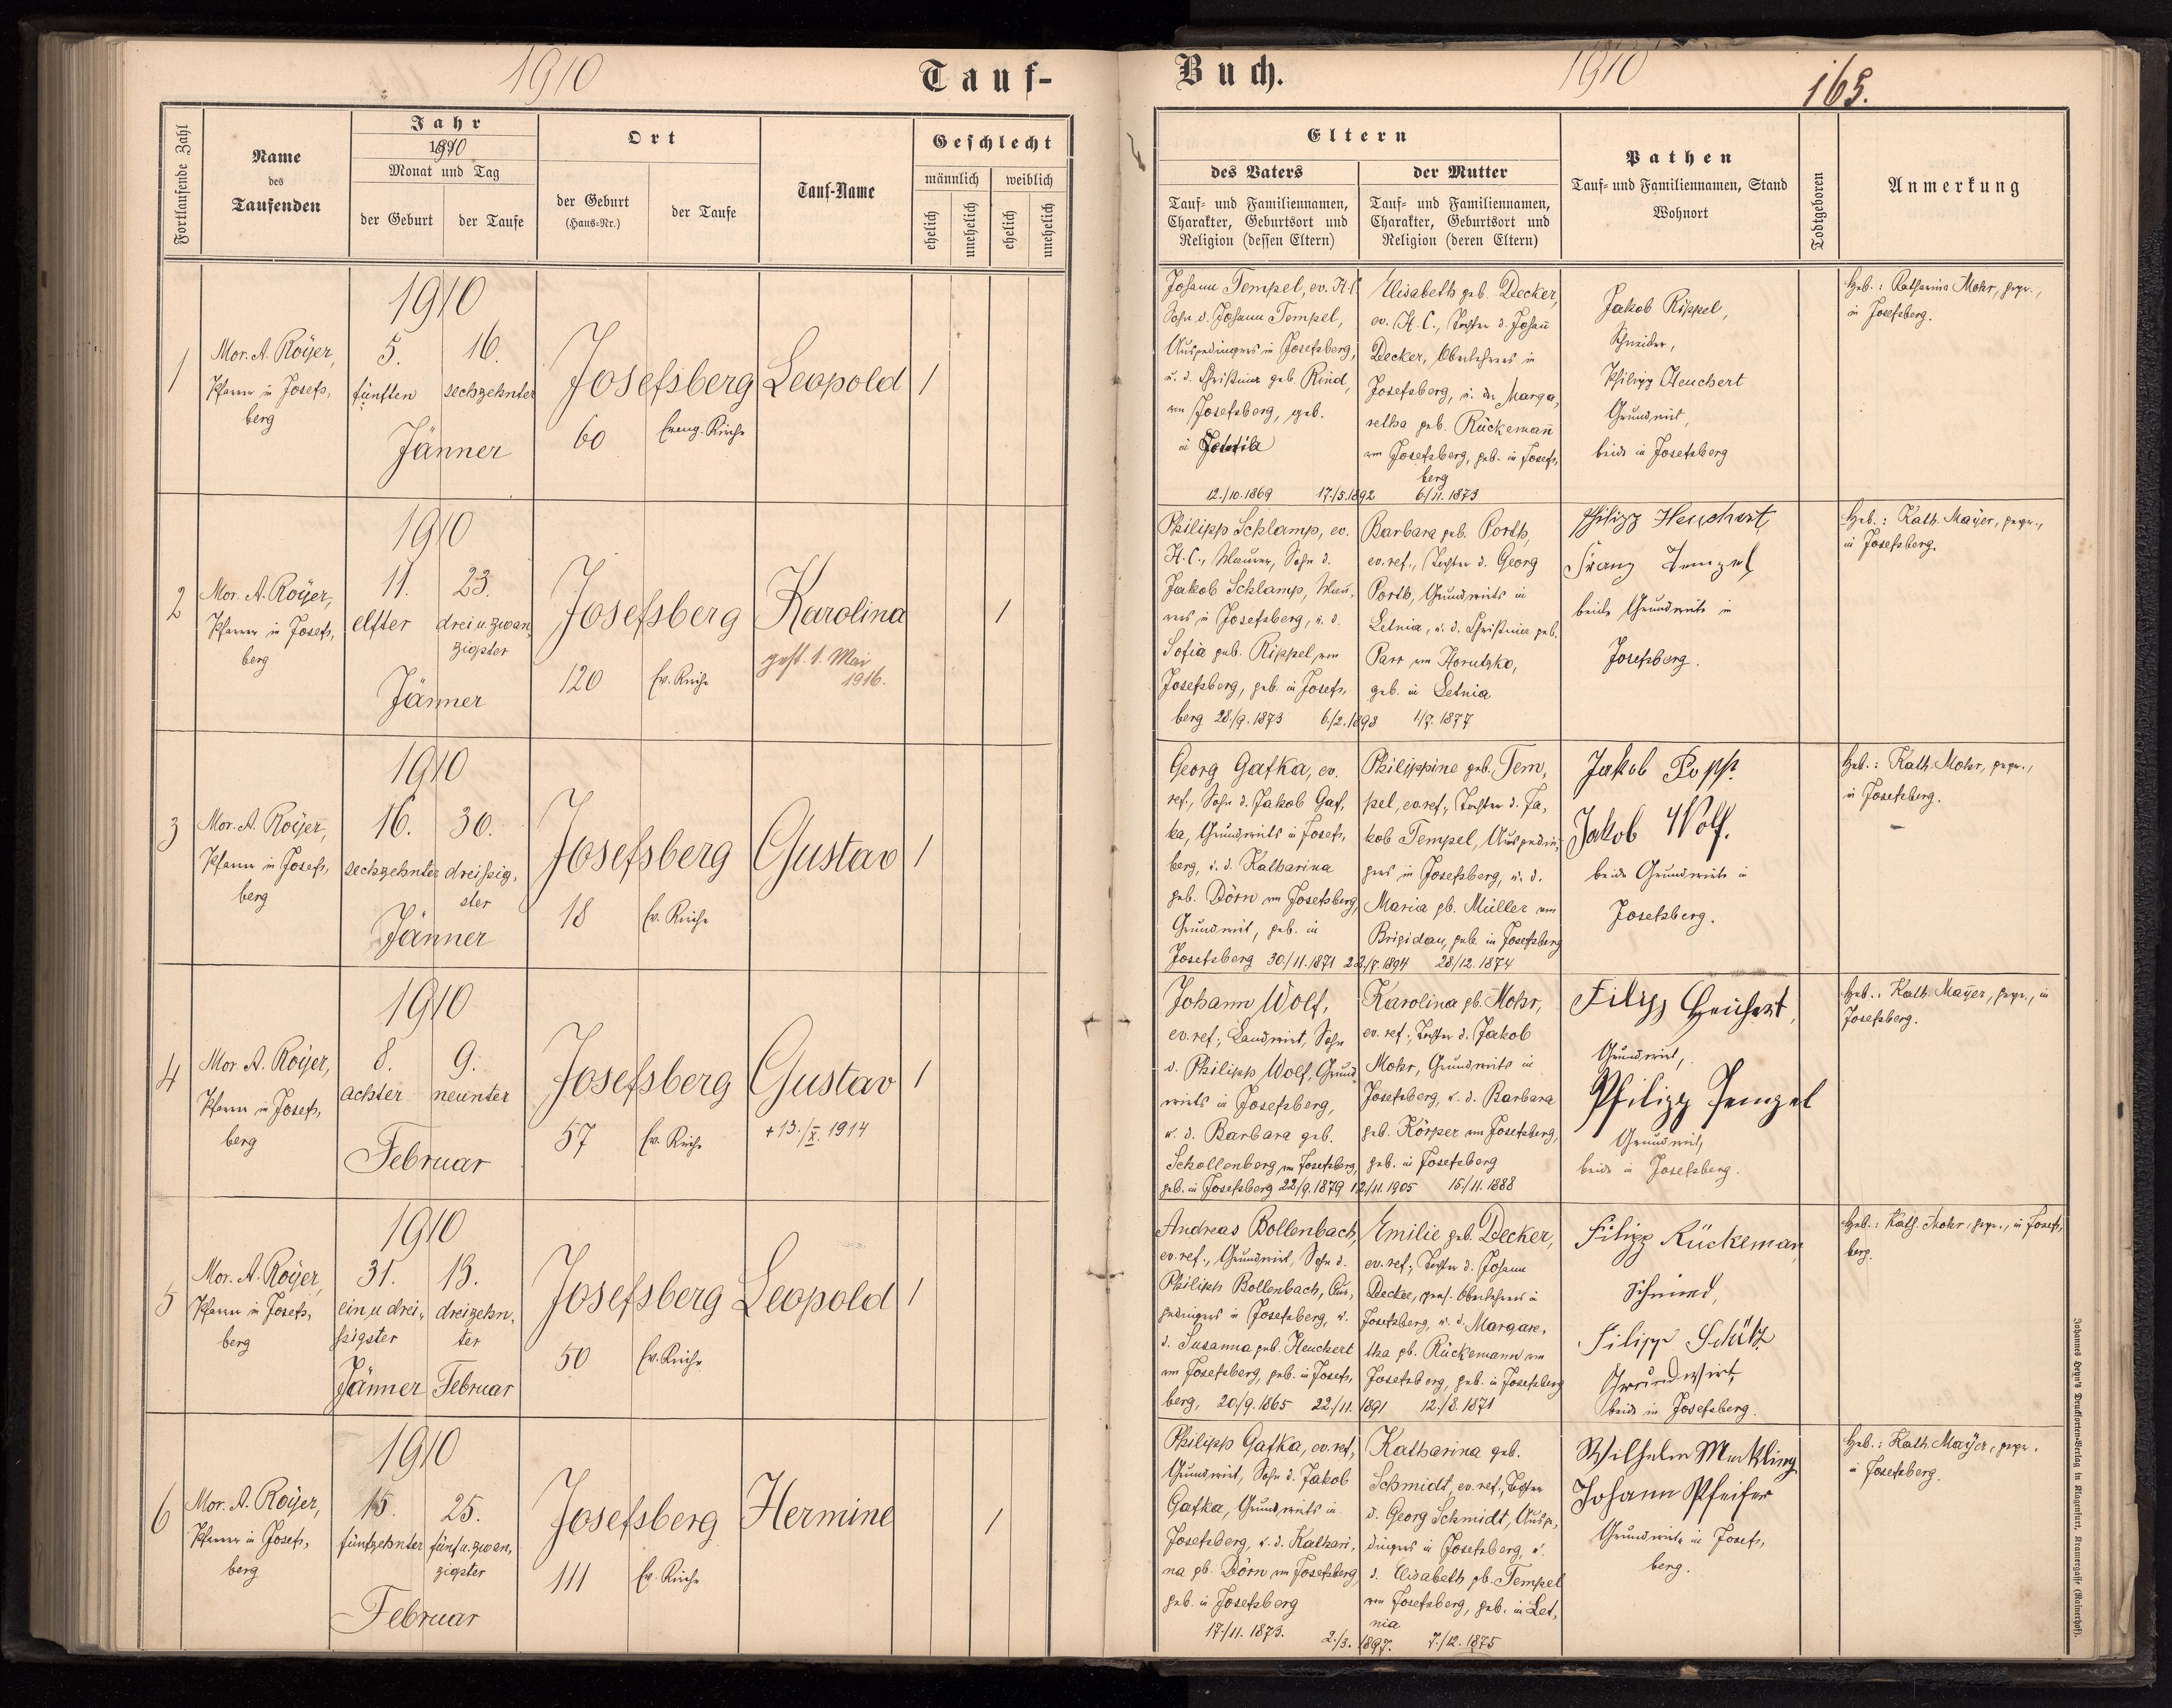 1910
Tauf-
Fortlaufende Zahl
Name
des
Taufenden
Jahr
1910
Monat und Tag
der Geburt
der Taufe
Ort
der Geburt
(Haus-Nr.)
der Taufe
Tauf-Name
Geschlecht
männlich
weiblich
ehelich
unehelich
ehelich
unehelich
1910
1
Mor. A. Royer,
Pfarrer in Josefs,
berg
5.
16.
fünften
sechzehnter
Jänner
Josefsberg
60
Evang. Kirche
Leopold
1
1910
2
Mor. A. Royer,
Pfarrer in Josefs,
berg
11.
23.
elfter
drei u. zwan,
zigster
Jänner
Josefsberg
120
Ev. Kirche
Karolina
gest. 1. Mai
1916.
1
1910
3
Mor. A. Royer,
Pfarrer in Josefs,
berg
16.
30.
sechzehnter
dreißig,
ster
Jänner
Josefsberg
18
Ev. Kirche
Gustav
1
1910
4
Mor. A. Royer,
Pfarrer in Josefs,
berg
8.
9.
achter
neunter
Februar
Josefsberg
57
Ev. Kirche
Gustav
+ 13./X. 1914
1
1910
5
Mor. A. Royer,
Pfarrer in Josefs,
berg
31.
13.
ein u. drei,
ßigster
dreizehn,
ter
Jänner
Februar
Josefsberg
50
Ev. Kirche
Leopold
1
1910
6
Mor. A. Royer,
Pfarrer in Josefs,
berg
15.
25.
fünfzehnter
fünf u. zwan,
zigster
Februar
Josefsberg
111
Ev. Kirche
Hermine
1
Buch.
1910
165.
Eltern
des Vaters
Tauf- und Familiennamen,
Charakter, Geburtsort und
Religion (dessen Eltern)
der Mutter
Tauf- und Familiennamen,
Charakter, Geburtsort und
Religion (deren Eltern)
Pathen
Tauf- und Familiennamen, Stand
Wohnort
Todtgeboren
Anmerkung
Johann Tempel, ev. H. C.
Sohn d. Johann Tempel,
Ausgedingers in Josefsberg,
u. d. Christina geb. Rind,
von Josefsberg, geb.
in
12./10. 1869
17./5. 1892
Elisabeth geb. Decker,
ev. H. C., Tochter d. Johan̄
Decker, Oberlehrers in
Josefsberg, u. der Marga,
retha geb. Rückeman̄
von Josefsberg, geb. in Josefs,
berg
6./11. 1873
Jakob Rippel,
Schneider,
Philipp Heuchert
Grundwirt,
beide in Josefsberg
Heb.: Katharina Mohr, gepr.,
in Josefsberg.
Philipp Schlamp, ev.
H. C., Maurer, Sohn d.
Jakob Schlamp, Mau,
rers in Josefsberg, u. d.
Sofia geb. Rippel, von
Josefsberg, geb. in Josefs,
berg 28./9. 1873
6./2. 1898
Barbara geb. Porth,
ev. ref., Tochter d. Georg
Porth, Grundwirts in
Letnia, u. d. Christina geb.
Parr von Horutzko,
geb. in Letnia
1/7. 1877
Philipp Heuchert,
Franz Tempel,
beide Grundwirte in
Josefsberg.
Heb.: Kath. Mayer, gepr.,
in Josefsberg.
Georg Gafka, ev.
ref., Sohn d. Jakob Gaf,
ka, Grundwirts in Josefs,
berg, u. d. Katharina
geb. Dörn von Josefsberg,
Grundwirt, geb. in
Josefsberg 30./11. 1871
22./7. 1894
Philippine geb. Tem,
pel, ev. ref., Tochter d. Ja,
kob Tempel, Ausgedin,
gers in Josefsberg, u. d.
Maria gb. Müller von
Brigidau, geb. in Josefsberg
28/12. 1874
Jakob Popp
Jakob Wolf.
beide Grundwirte in
Josefsberg.
Heb.: Kath. Mohr, gepr.,
in Josefsberg.
Johann Wolf,
ev. ref., Landwirt, Sohn
d. Philipp Wolf, Grund,
wirts in Josefsberg,
u. d. Barbara geb.
Schollenberg von Josefsberg,
geb. in Josefsberg 22/9. 1879
12./11. 1905
Karolina gb. Mohr,
ev. ref., Tochter d. Jakob
Mohr, Grundwirts in
Josefsberg, u. d. Barbara
geb. Körper von Josefsberg,
geb. in Josefsberg
15./11. 1888
Filipp Heuchert,
Grundwirt,
Philipp Tempel
Grundwirt,
beide in Josefsberg.
Heb.: Kath. Mayer, gepr., in
Josefsberg.
Andreas Bollenbach,
ev. ref., Grundwirt, Sohn d.
Philipp Bollenbach, Aus,
gedingers in Josefsberg, u.
d. Susanna geb. Heuchert
von Josefsberg, geb. in Josefs,
berg, 20./9. 1865
22./11. 1891
Emilie geb. Decker,
ev. ref., Tochter d. Johann
Decker, pens. Oberlehrers in
Josefsberg, u. d. Margare,
tha gb. Rückemann von
Josefsberg, geb. in Josefsberg
12./8. 1871
Filipp Rückeman
Schmied,
Filipp Schütz
Grundwirt,
beide in Josefsberg.
Heb.: Kath. Mohr, gepr., in Josefs,
berg.
Philipp Gafka, ev. ref.,
Grundwirt, Sohn d. Jakob
Gafka, Grundwirts in
Josefsberg, u. d. Kathari,
na gb. Dörn von Josefsberg,
geb. in Josefsberg
17./11. 1873.
2./3. 1897.
Katharina geb.
Schmidt, ev. ref., Tochter
d. Georg Schmidt, Ausge,
dingers in Josefsberg, u.
d. Elisabeth gb. Tempel
von Josefsberg, geb. in Let,
nia
7./12. 1875
Wilhelm Merkling
Johann Pfeifer
Grundwirte in Josefs,
berg.
Heb.: Kath. Mayer, gepr.
in Josefsberg.
Johannes Heyn's Drucksorten-Verlag in Klagenfurt, Kramergasse (Rainerhof).